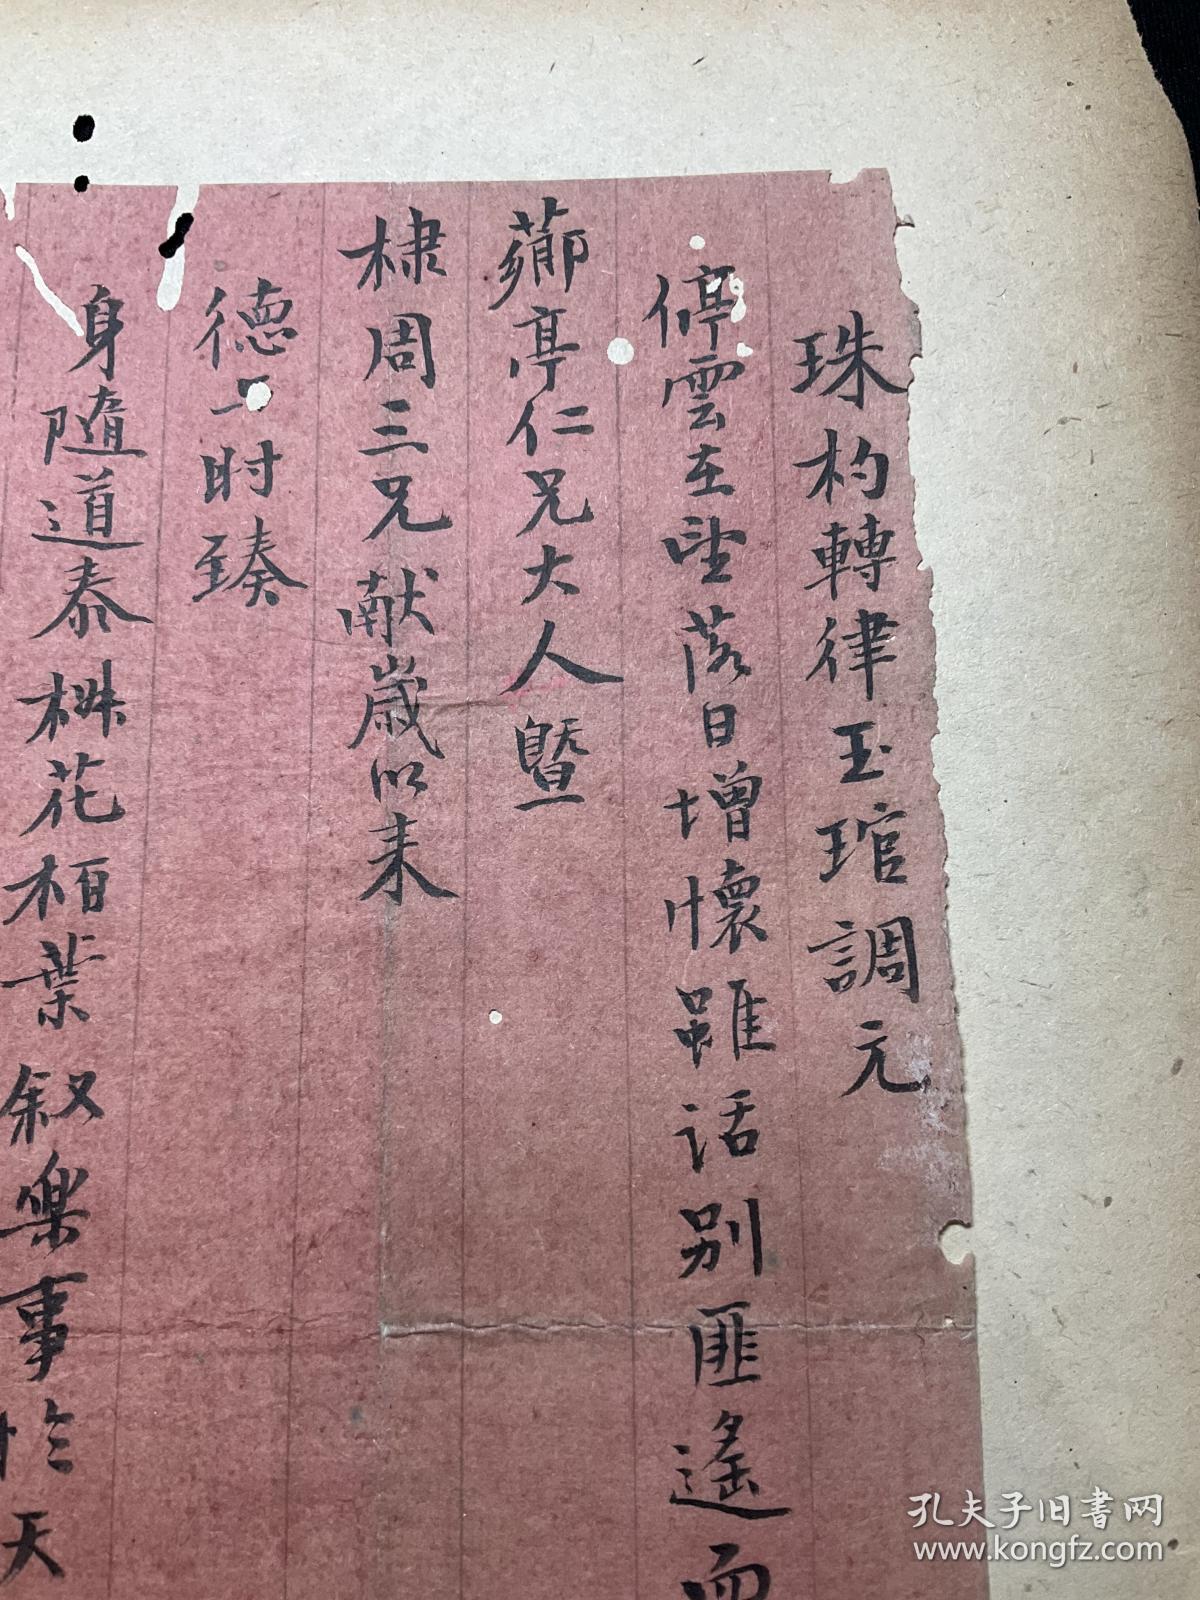 珠杓轉律玉琯調元
停雲在望落日增懷雖話別匪遙而
薌亭仁兄大人暨
棣周三兄献歲以来
德與时臻
身隨道泰椒花栢葉叙樂事怡天
孔夫子旧书网
www.kongfz.com